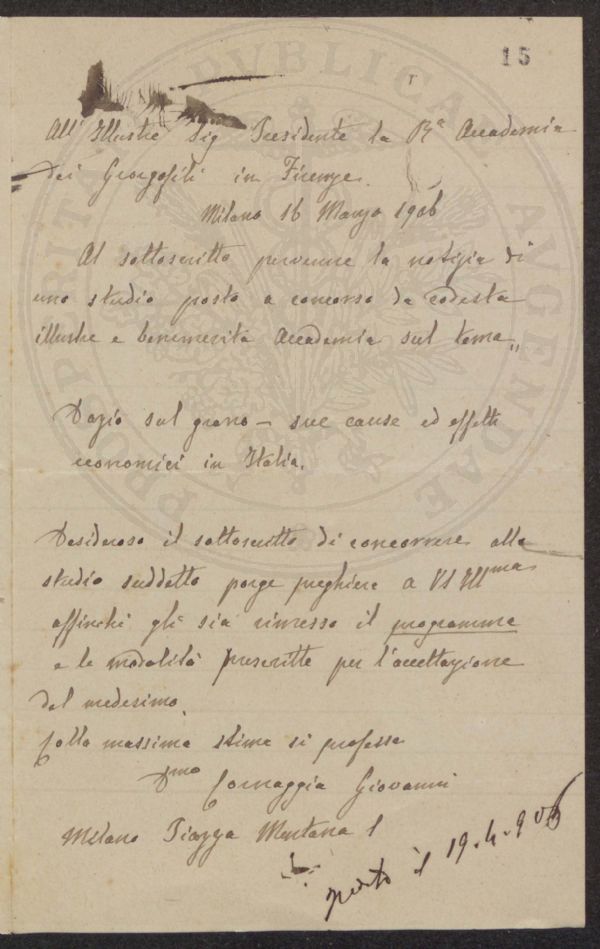 15
All' Illustre Sig Presidente la Rª Accademia
dei Georgofili in Firenze.
Milano 16 Marzo 1906
Al sottoscritto pervenne la notizia di
uno studio posto a concorso da codesta
illustre e benemerita Accademia sul tema „
Dazio sul grano – sue cause ed effetti
economici in Italia.
Desideroso il sottoscritto di concorrere allo
studio suddetto porge preghiera a VS Illma
affinchè gli sia rimesso il programma
e le modalità prescritte per l'accettazione
del medesimo.
Colla massima stima si professa
Dmo Cornaggia Giovanni
Milano Piazza Mentana 1
il 19.4.906
PROSPERITATI PVBLICAE AVGENDAE